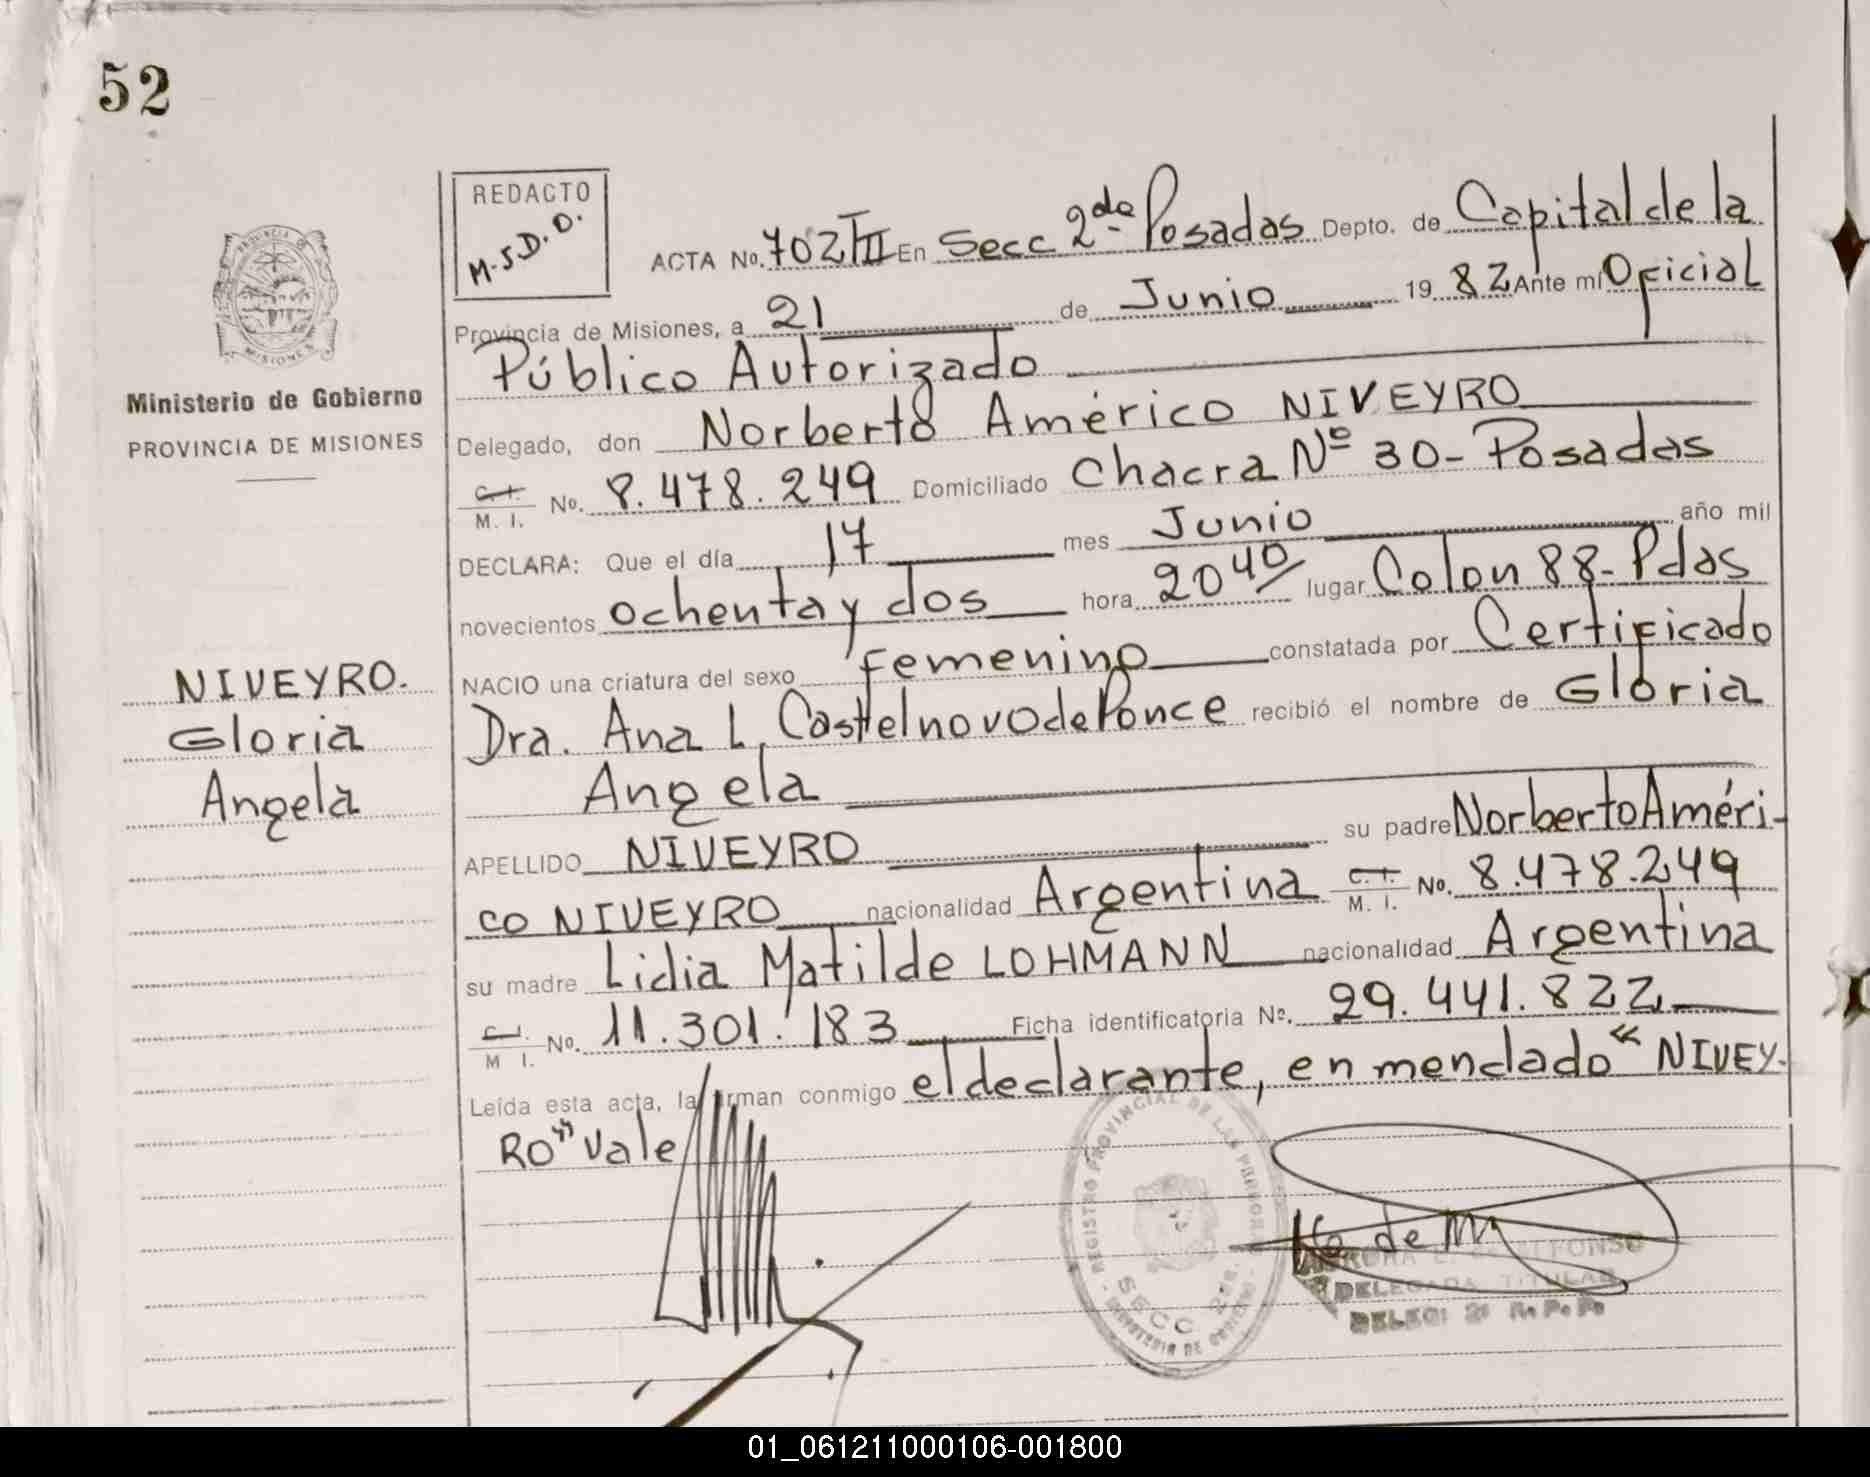 52
REDACTO
M.S.D.D.
ACTA No. 702/II En Secc 2da. Posadas Depto. de Capital de la
Provincia de Misiones, a 21 de Junio 1982 Ante mí Oficial
Público Autorizado
PROVINCIA DE
MISIONES
Ministerio de Gobierno
PROVINCIA DE MISIONES
Delegado, don Norberto Américo NIVEYRO
C. I. / M. I. No. 8.478.249 Domiciliado Chacra Nº 30- Posadas
DECLARA: Que el día 17 mes Junio año mil
novecientos ochenta y dos hora 20 40/ lugar Colon 88- Pdas
NACIO una criatura del sexo femenino constatada por Certificado
Dra. Ana L. Castelnovo de Ponce recibió el nombre de Gloria
Angela
NIVEYRO.
Gloria
Angela
APELLIDO NIVEYRO su padre Norberto Améri-
co NIVEYRO nacionalidad Argentina C. I. / M. I. No. 8.478.249
su madre Lidia Matilde LOHMANN nacionalidad Argentina
C. I. / M I. No. 11.301.183 Ficha identificatoria Nº. 29.441.822
Leída esta acta, la firman conmigo el declarante, enmendado "NIVEY-
RO" Vale
REGISTRO PROVINCIAL DE LAS PERSONAS
SECC 2da.
MINISTERIO DE GOBIERNO
DELEGADA TITULAR
DELEG. 2ª R. P. P.
01_061211000106-001800